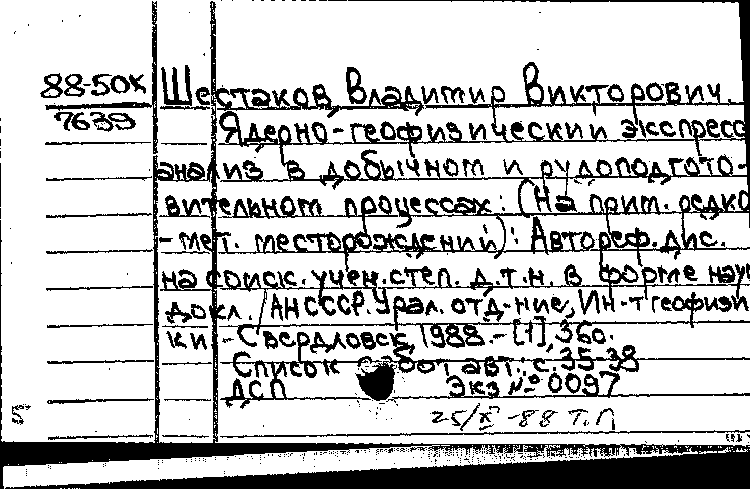 88-50к Шестаков, Владимир Викторович.
7639 Ядерно-геофизический экспресс
анализ в добычном и рудоподгото-
вительном процессах: (На прим. редко
-мет. месторождений): Автореф. дис.
на соиск. учен. степ. д.т.н. в форме науч
докл. /АН СССР. Урал. отд-ние, Ин-т геофизи
ки.-Свердловск, 1988.-[1], 36с.
Список работ авт.: с. 35-38
ДСП Экз № 0097
25/X -88 Т.П
5